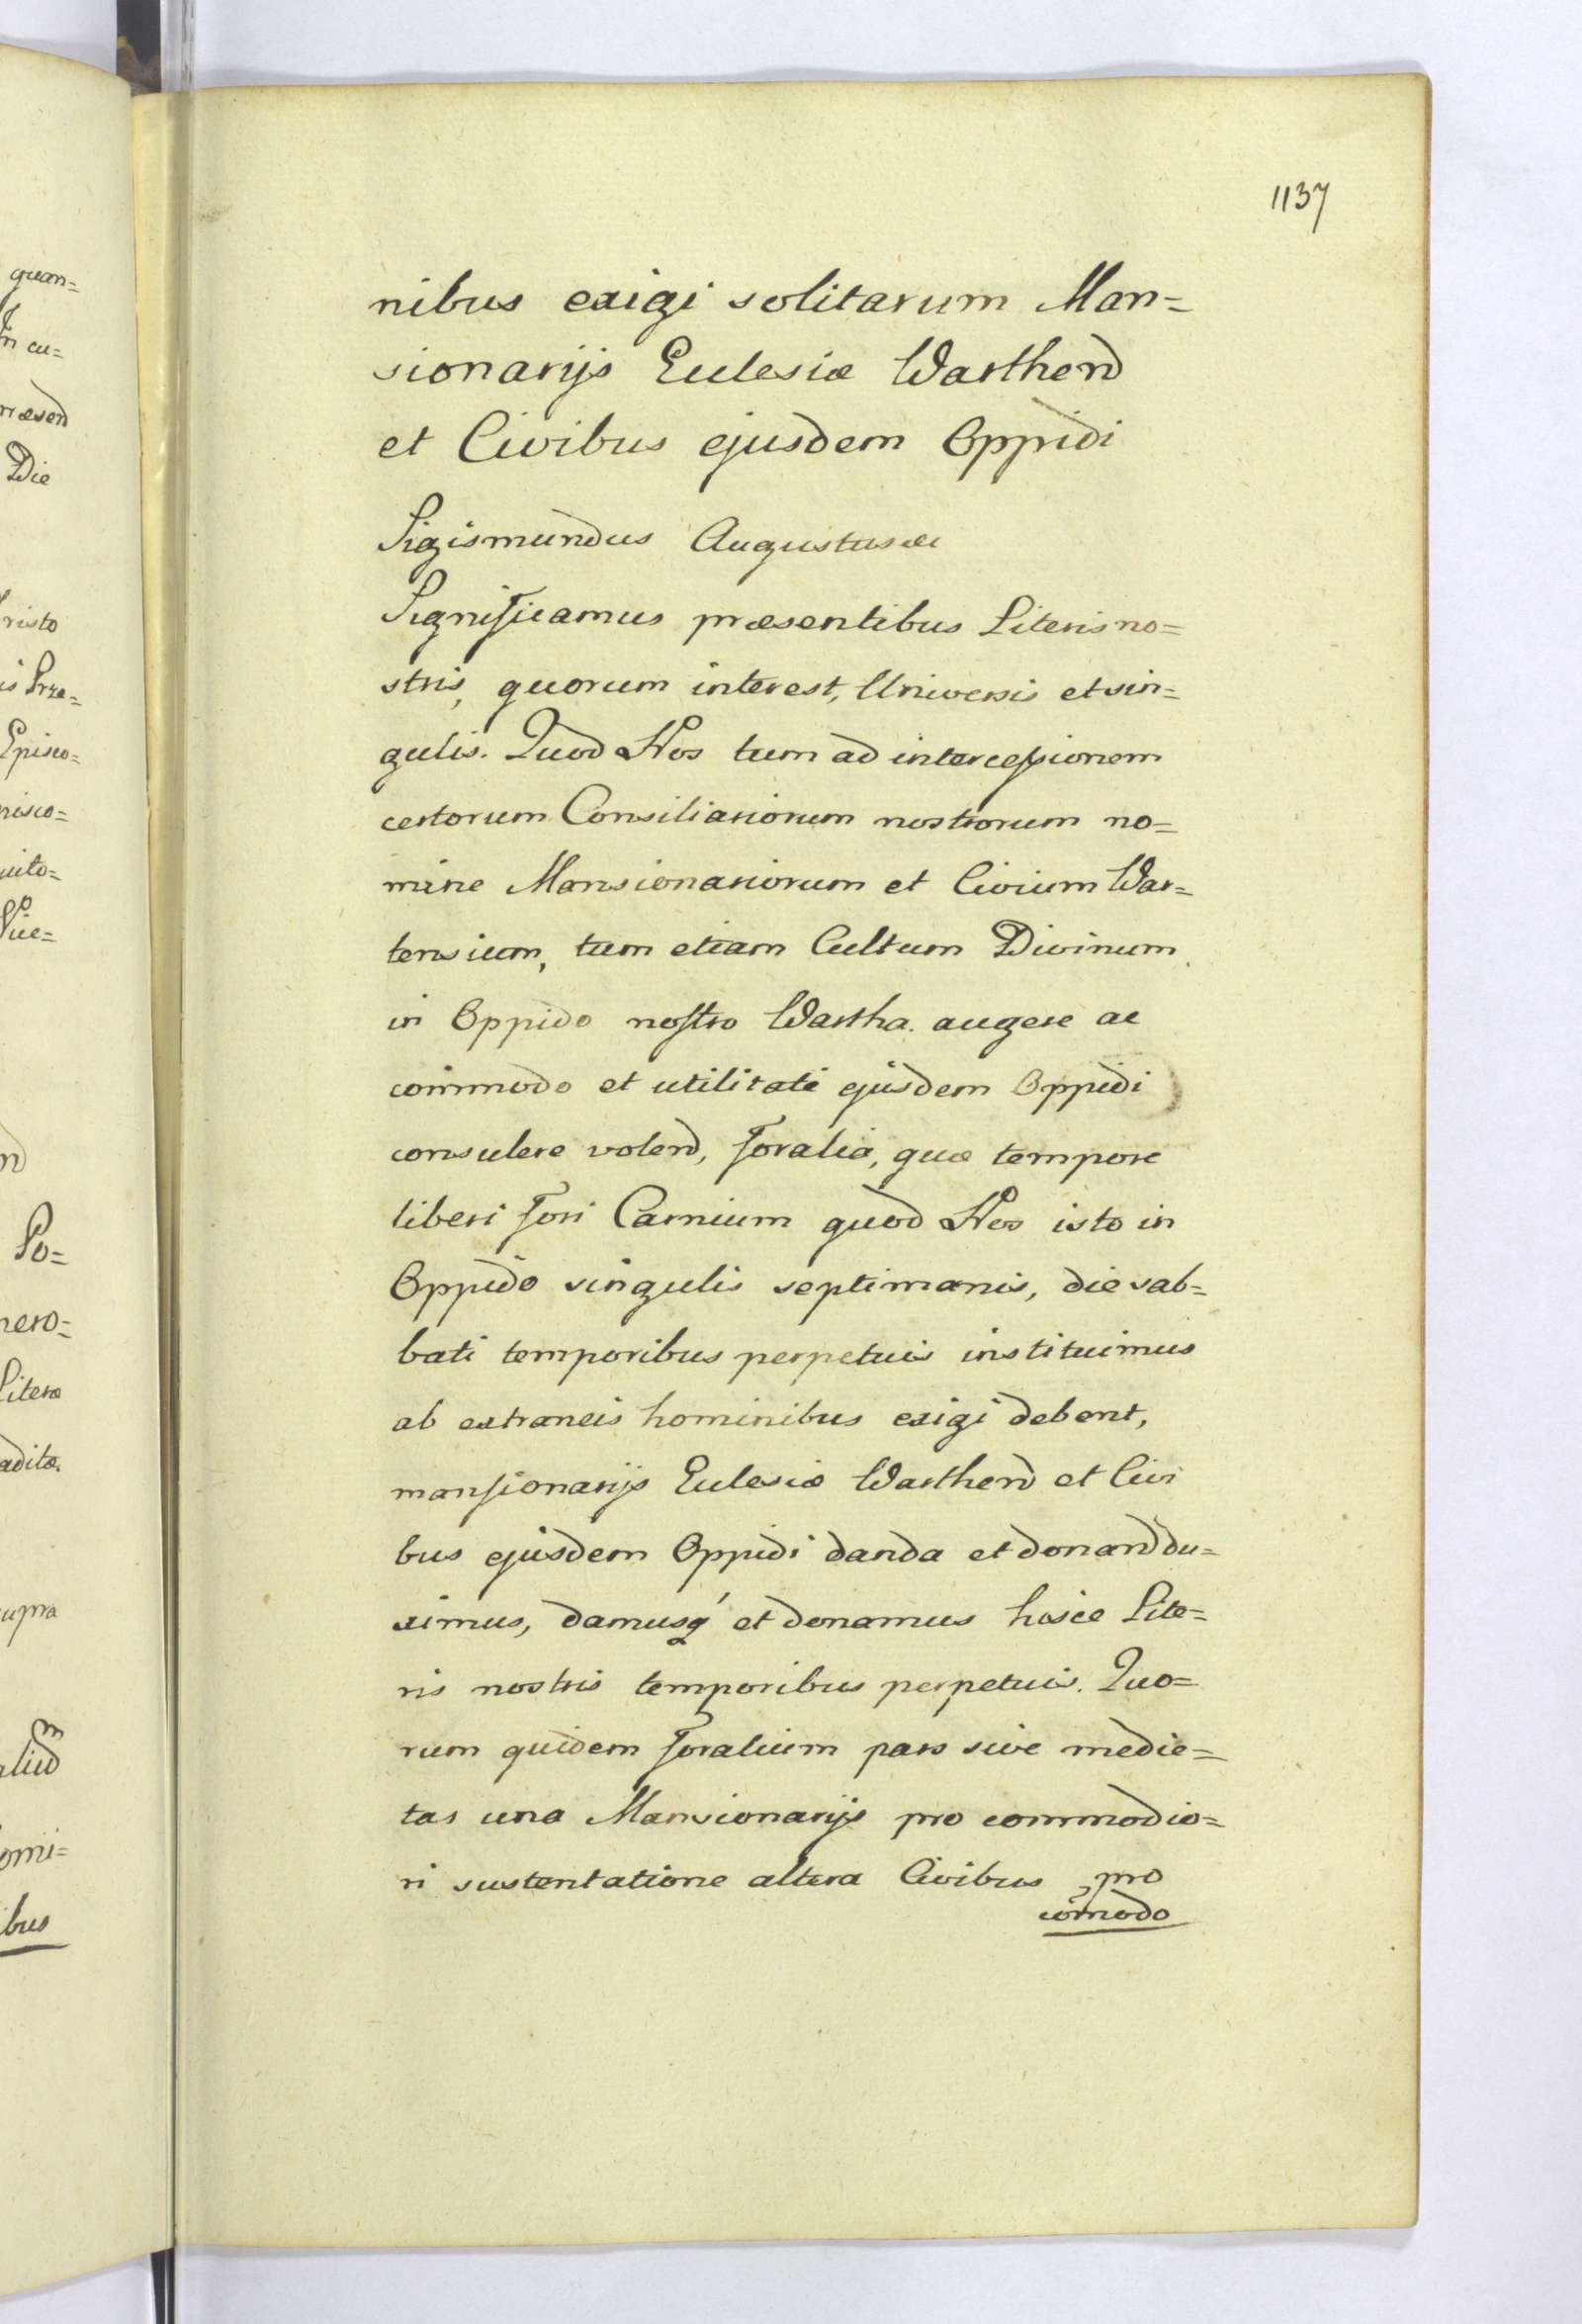 1137
nibus exigi solitarum Man=
sionarijs Ecclesiæ Warthen̄
et Civibus ejusdem Oppidi
Sigismundus Augustus etc
Significamus præsentibus Literis no=
stris, quorum interest, Universis et sin=
gulis. Quod Nos tum ad intercessionem
certorum Consiliariorum nostrorum no=
mine Mansionariorum et Civium War=
tensium, tum etiam Cultum Divinum
in Oppido nostro Wartha augere ac
commodo et utilitati ejusdem Oppidi
consulere volen̄, foralia, quæ tempore
liberi fori Carnium quod Nos isto in
Oppido singulis septimanis, die sab=
bati temporibus perpetuis instituimus
ab extraneis hominibus exigi debent,
mansionarijs Ecclesiæ Warthen̄ et Civi
bus ejusdem Oppidi danda et donand du=
ximus, damusq́ et donamus hisce Lite=
ris nostris temporibus perpetuis. Quo=
rum quidem foralium pars sive medie=
tas una Mansionarijs pro commodio=
ri sustentatione altera Civibus pro
com̄odo
quan=
in cu=
Die
risto
is Prze=
Episco=
Po=
nero=
Literæ
adita.
supra
omi=
ibus